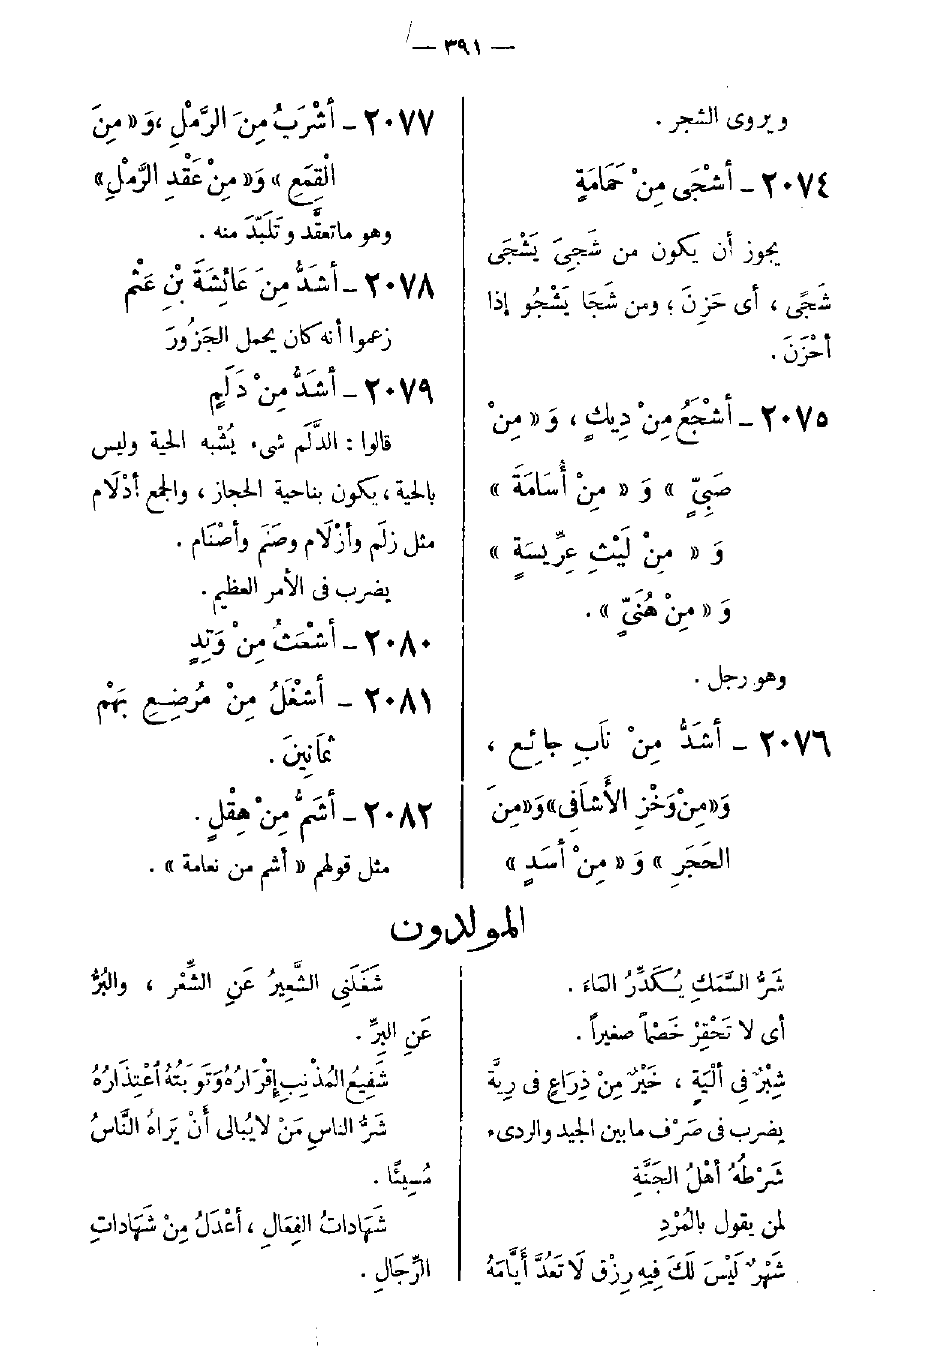 — ٣٩١ —
ويروى الشجر .
٢٠٧٤ – أشْجَى مِنْ حَمَامَةٍ
يجوز أن يكون من شَجِىَ يَشْجَى
شَجًى ، أى حَزِنَ ؛ ومن شَجَا يَشْجُو إذا
أحْزَنَ .
٢٠٧٥ – أشْجَعُ مِنْ دِيكٍ ، وَ « مِنْ
صَبِىٍّ » وَ « مِنْ أُسَامَةَ »
وَ « مِنْ لَيْثِ عِرِّيسَةٍ »
وَ « مِنْ هُنَىٍّ » .
وهو رجل .
٢٠٧٦ – أشَدُّ مِنْ نَابِ جائِعٍ ،
وَ«مِنْ وَخْزِ الأشَافِى» وَ«مِنَ
الحَجَرِ » وَ « مِنْ أسَدٍ »
٢٠٧٧ – أشْرَبُ مِنَ الرَّمْلِ ، وَ « مِنَ
الْقِمَعِ » وَ« مِنْ عَقْدِ الرَّمْلِ»
وهو ماتعقَّد وتَلَبَّدَ منه .
٢٠٧٨ – أشَدُّ مِنَ عَائِشَةَ بْنِ عَثْمٍ
زعموا أنه كان يحمل الجَزُورَ
٢٠٧٩ – أشَدُّ مِنْ دَلَمٍ
قالوا : الدَّلَم شىء يُشْبه الحية وليس
بالحية ، يكون بناحية الحجاز ، والجمع أدْلَام
مثل زلَم وأزْلَام وصَنَم وأصْنَام .
يضرب فى الأمر العظيم .
٢٠٨٠ – أشْعَثُ مِنْ وَتِدٍ
٢٠٨١ – أشْغَلُ مِنْ مُرْضِعِ بَهْمٍ
ثمَانِينَ .
٢٠٨٢ – أشَمُّ مِنْ هِقْلٍ .
مثل قولهم « أشم من نعامة » .
المولدون
شَرُّ السَّمَكِ يُكَدِّرُ المَاءَ .
أى لا تَحْقِرْ خَصْماً صغيراً .
شِبْرٌ فِى ألْيَةٍ ، خَيْرٌ مِنْ ذِرَاعٍ فى رِيَّة
يضرب فى صَرْف مابين الجيد والردىء
شَرْطُهُ أهْلُ الجَنَّةِ
لمن يقول بالمُرْدِ
شَهْرٌ لَيْسَ لَكَ فِيهِ رِزْق لَا تَعُدَّ أيَّامَهُ
شَغَلَنِى الشَّعِيرُ عَنِ الشِّعْر ، والبُرُّ
عَنِ البِرِّ .
شَفِيعُ المُذْنِبِ إقْرَارُهُ وَتَوبَتُهُ أعْتِذَارُهُ
شَرُّ الناسِ مَنْ لايُبالى أنْ يَرَاهُ النَّاسُ
مُسِيئًا .
شَهَادَاتُ الفِعَالِ ، أعْدَلُ مِنْ شَهَادَاتِ
الرِّجَالِ .